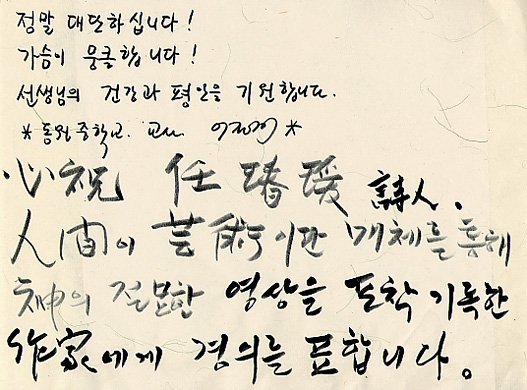 정말 대단하십니다!
가슴이 뭉클합니다!
선생님의 건강과 평안을 기원합니다.
*동원중학교 교사 *
心祝 任 瑃瑗 詩人.
人間이 芸術이란 매체를 통해
神의 절묘한 영상을 포착 기록한
作家에게 경의를 표합니다.